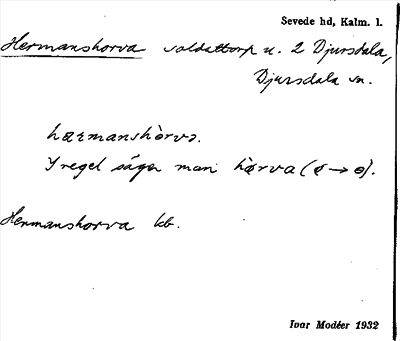 Sevede hd, Kalm. l.
Hermanshorva soldattorp u. 2 Djursdala,
Djursdala sn.
hærmanshòrvə.
I regel säger man hòrva (ó → ө).
Hermanshorva kb.
Ivar Modéer 1932